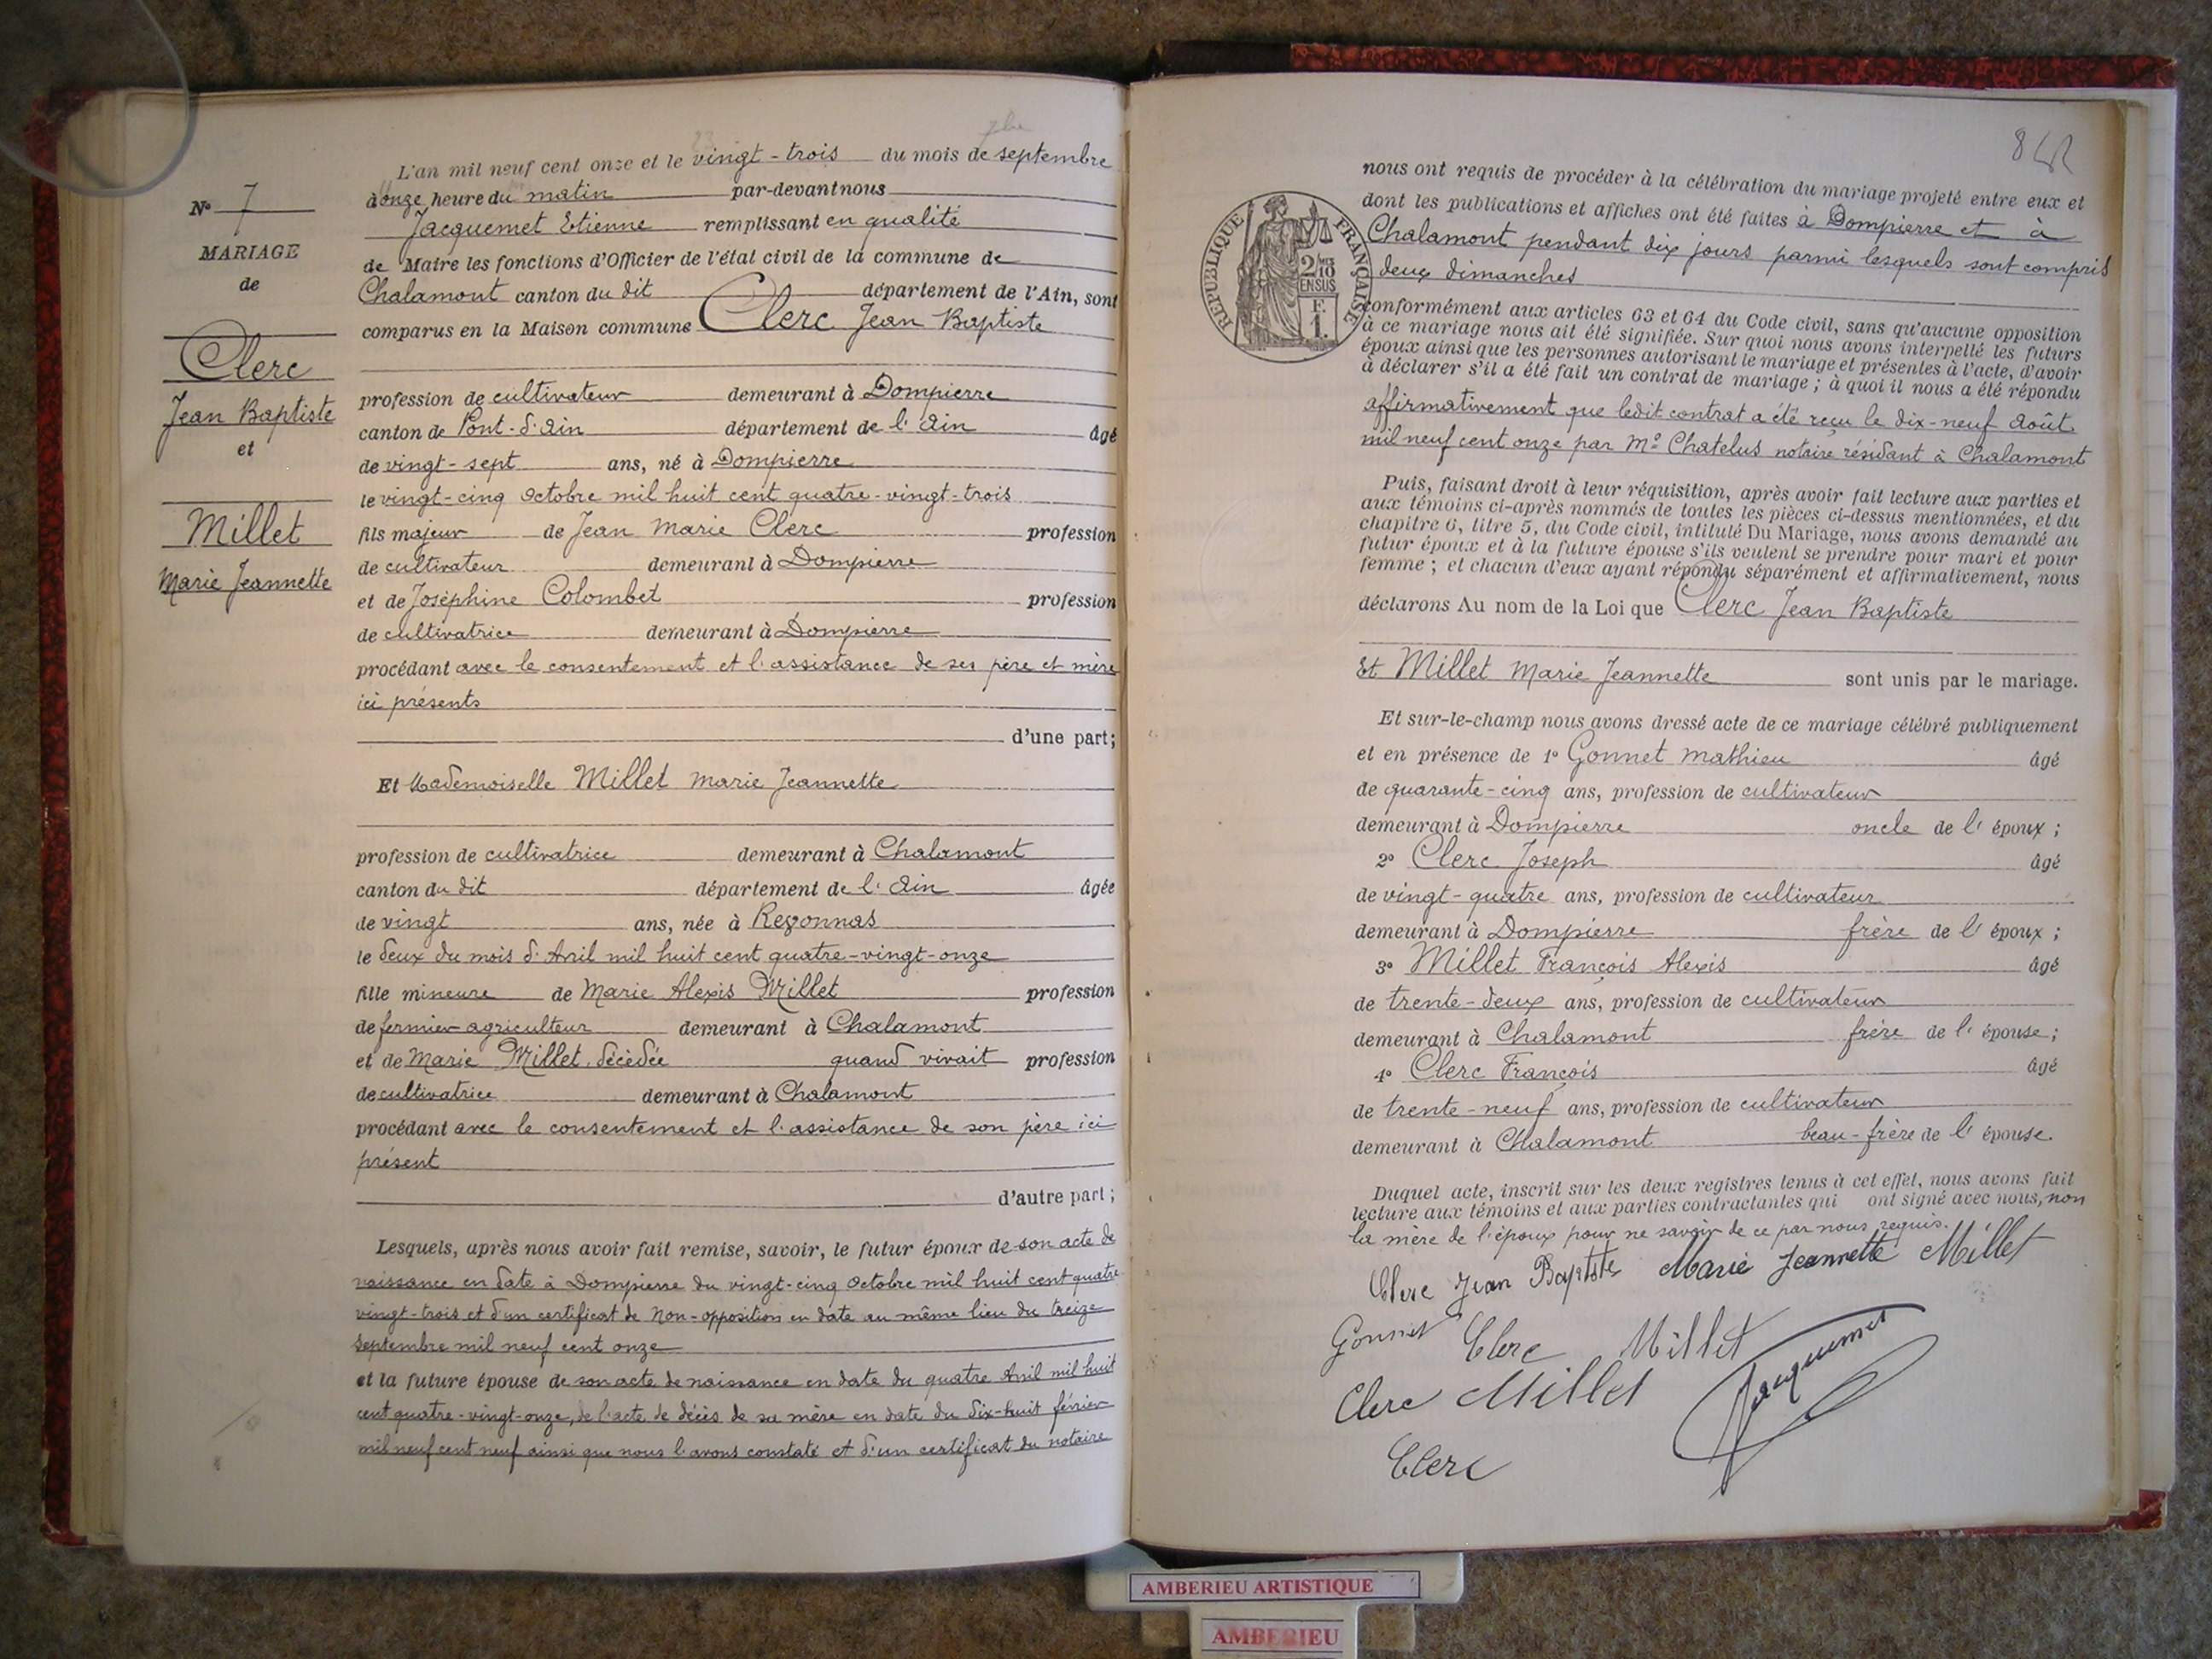 7bre
L'an mil neuf cent onze et le vingt-trois du mois de septembre
à onze heure du matin par-devant nous
Jacquemet Etienne remplissant en qualité
de Maire les fonctions d'Officier de l'état civil de la commune de
Chalamont canton du dit département de l'Ain, sont
comparus en la Maison commune Clerc Jean Baptiste
profession de cultivateur demeurant à Dompierre
canton de Pont-d'Ain département de l'Ain âgé
de vingt-sept ans, né à Dompierre
le vingt-cinq Octobre mil huit cent quatre-vingt-trois
fils majeur de Jean Marie Clerc profession
de cultivateur demeurant à Dompierre
et de Joséphine Colombet profession
de cultivatrice demeurant à Dompierre
procédant avec le consentement et l'assistance de ses père et mère
ici présents
d'une part;
Et Mademoiselle Millet Marie Jeannette
profession de cultivatrice demeurant à Chalamont
canton du dit département de l'Ain âgée
de vingt ans, née à Revonnas
le deux du mois d'Avril mil huit cent quatre-vingt-onze
fille mineure de Marie Alexis Millet profession
de fermier agriculteur demeurant à Chalamont
et de Marie Millet décèdée quand vivait profession
de cultivatrice demeurant à Chalamont
procédant avec le consentement et l'assistance de son père ici
présent
d'autre part;
Lesquels, après nous avoir fait remise, savoir, le futur époux de son acte de
naissance en date à Dompierre du vingt-cinq Octobre mil huit cent quatre
vingt-trois et d'un certificat de Non-opposition en date au même lieu du treize
Septembre mil neuf cent onze
et la future épouse de son acte de naissance en date du quatre Avril mil huit
cent quatre-vingt-onze, de l'acte de décès de sa mère en date du dix-huit février
mil neuf cent neuf ainsi que nous l'avons constaté et d'un certificat du notaire
N° 7
MARIAGE
de
Clerc
Jean Baptiste
et
Millet
Marie Jeannette
8
RÉPUBLIQUE FRANÇAISE
2/10
EN SUS
F.
1.
nous ont requis de procéder à la célébration du mariage projeté entre eux et
dont les publications et affiches ont été faites à Dompierre et à
Chalamont pendant dix jours parmi lesquels sont compris
deux dimanches
conformément aux articles 63 et 64 du Code civil, sans qu'aucune opposition
à ce mariage nous ait été signifiée. Sur quoi nous avons interpellé les futurs
époux ainsi que les personnes autorisant le mariage et présentes à l'acte, d'avoir
à déclarer s'il a été fait un contrat de mariage; à quoi il nous a été répondu
affirmativement que ledit contrat a été reçu le dix-neuf Août
mil neuf cent onze par Me Chatelus notaire résidant à Chalamont
Puis, faisant droit à leur réquisition, après avoir fait lecture aux parties et
aux témoins ci-après nommés de toutes les pièces ci-dessus mentionnées, et du
chapitre 6, titre 5, du Code civil, intitulé Du Mariage, nous avons demandé au
futur époux et à la future épouse s'ils veulent se prendre pour mari et pour
femme; et chacun d'eux ayant répondu séparément et affirmativement, nous
déclarons Au nom de la Loi que Clerc Jean Baptiste
Et Millet Marie Jeannette sont unis par le mariage.
Et sur-le-champ nous avons dressé acte de ce mariage célébré publiquement
et en présence de 1° Gonnet Mathieu âgé
de quarante-cinq ans, profession de cultivateur
demeurant à Dompierre oncle de l'époux;
2° Clerc Joseph âgé
de vingt-quatre ans, profession de cultivateur
demeurant à Dompierre frère de l'époux;
3° Millet François Alexis âgé
de trente-deux ans, profession de cultivateur
demeurant à Chalamont frère de l'épouse;
4° Clerc François âgé
de trente-neuf ans, profession de cultivateur
demeurant à Chalamont beau-frère de l'épouse.
Duquel acte, inscrit sur les deux registres tenus à cet effet, nous avons fait
lecture aux témoins et aux parties contractantes qui ont signé avec nous, non
la mère de l'époux pour ne savoir de ce par nous requis.
Clerc Jean Baptiste Marie Jeannette Millet
Gonnet Clerc Millet
Clerc Millet Jacquemet
Clerc
AMBERIEU ARTISTIQUE
AMBERIEU